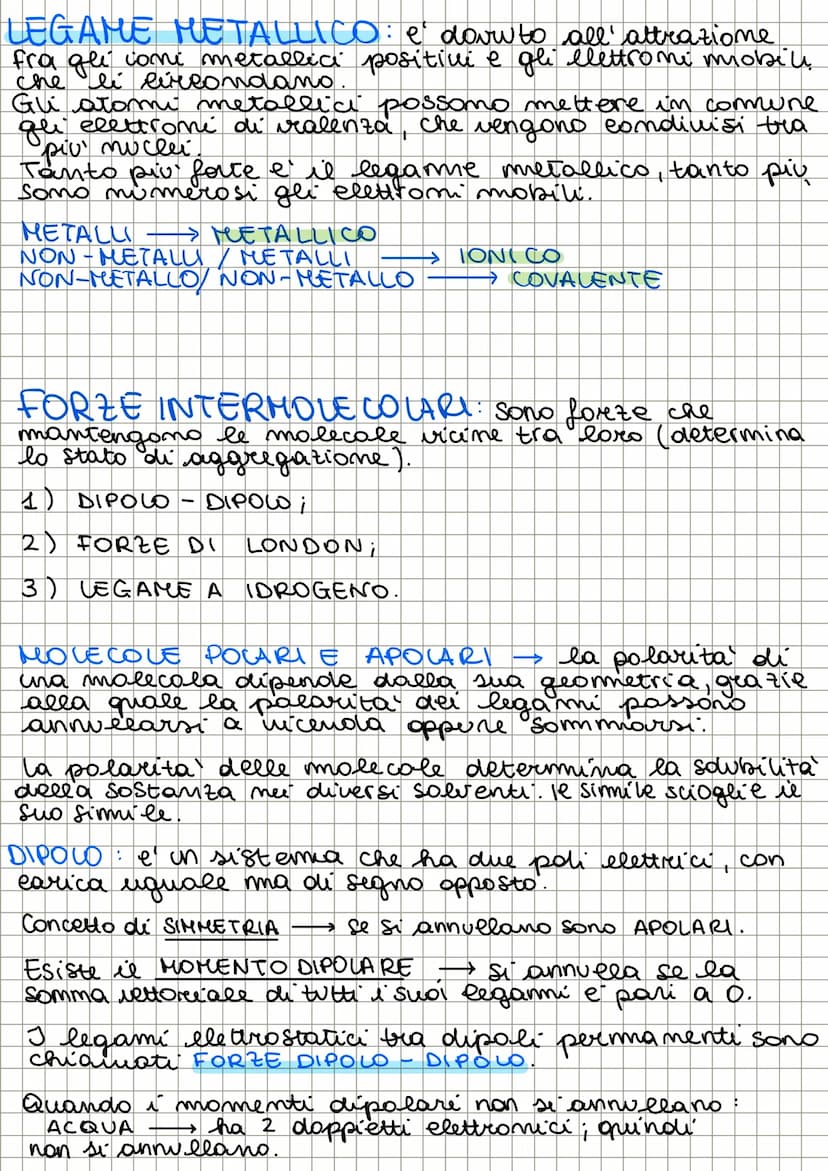 LEGAME METALLICO: e' dovuto all'attrazione
fra gli ioni metallici positivi e gli elettroni mobili
che li circondano.
Gli atomi metallici possono mettere in comune
gli elettroni di valenza, che vengono condivisi tra
piu' nuclei.
Tanto piu' forte e' il legame metallico, tanto piu,
sono numerosi gli elettroni mobili.
METALLI → METALLICO
NON-METALLI / METALLI → IONICO
NON-METALLO/ NON-METALLO → COVALENTE
FORZE INTERMOLECOLARI: sono forze che
mantengono le molecole vicine tra loro (determina
lo stato di aggregazione).
1) DIPOLO - DIPOLO;
2) FORZE DI LONDON;
3) LEGAME A IDROGENO.
MOLECOLE POLARI E APOLARI → la polarita' di
una molecola dipende dalla sua geometria, grazie
alla quale la polarita' dei legami possono
annullarsi a vicenda oppure sommarsi.
La polarita' delle molecole determina la solubilita'
della sostanza nei diversi solventi. Il simile scioglie il
suo simile.
DIPOLO: e' un sistema che ha due poli elettrici, con
carica uguale ma di segno opposto.
Concetto di SIMMETRIA → se si annullano sono APOLARI.
Esiste il MOMENTO DIPOLARE → si annulla se la
somma vettoriale di tutti i suoi legami e' pari a 0.
I legami elettrostatici tra dipoli permamenti sono
chiamati FORZE DIPOLO - DIPOLO.
Quando i momenti dipolari non si annullano:
ACQUA → ha 2 doppietti elettronici; quindi
non si annullano.